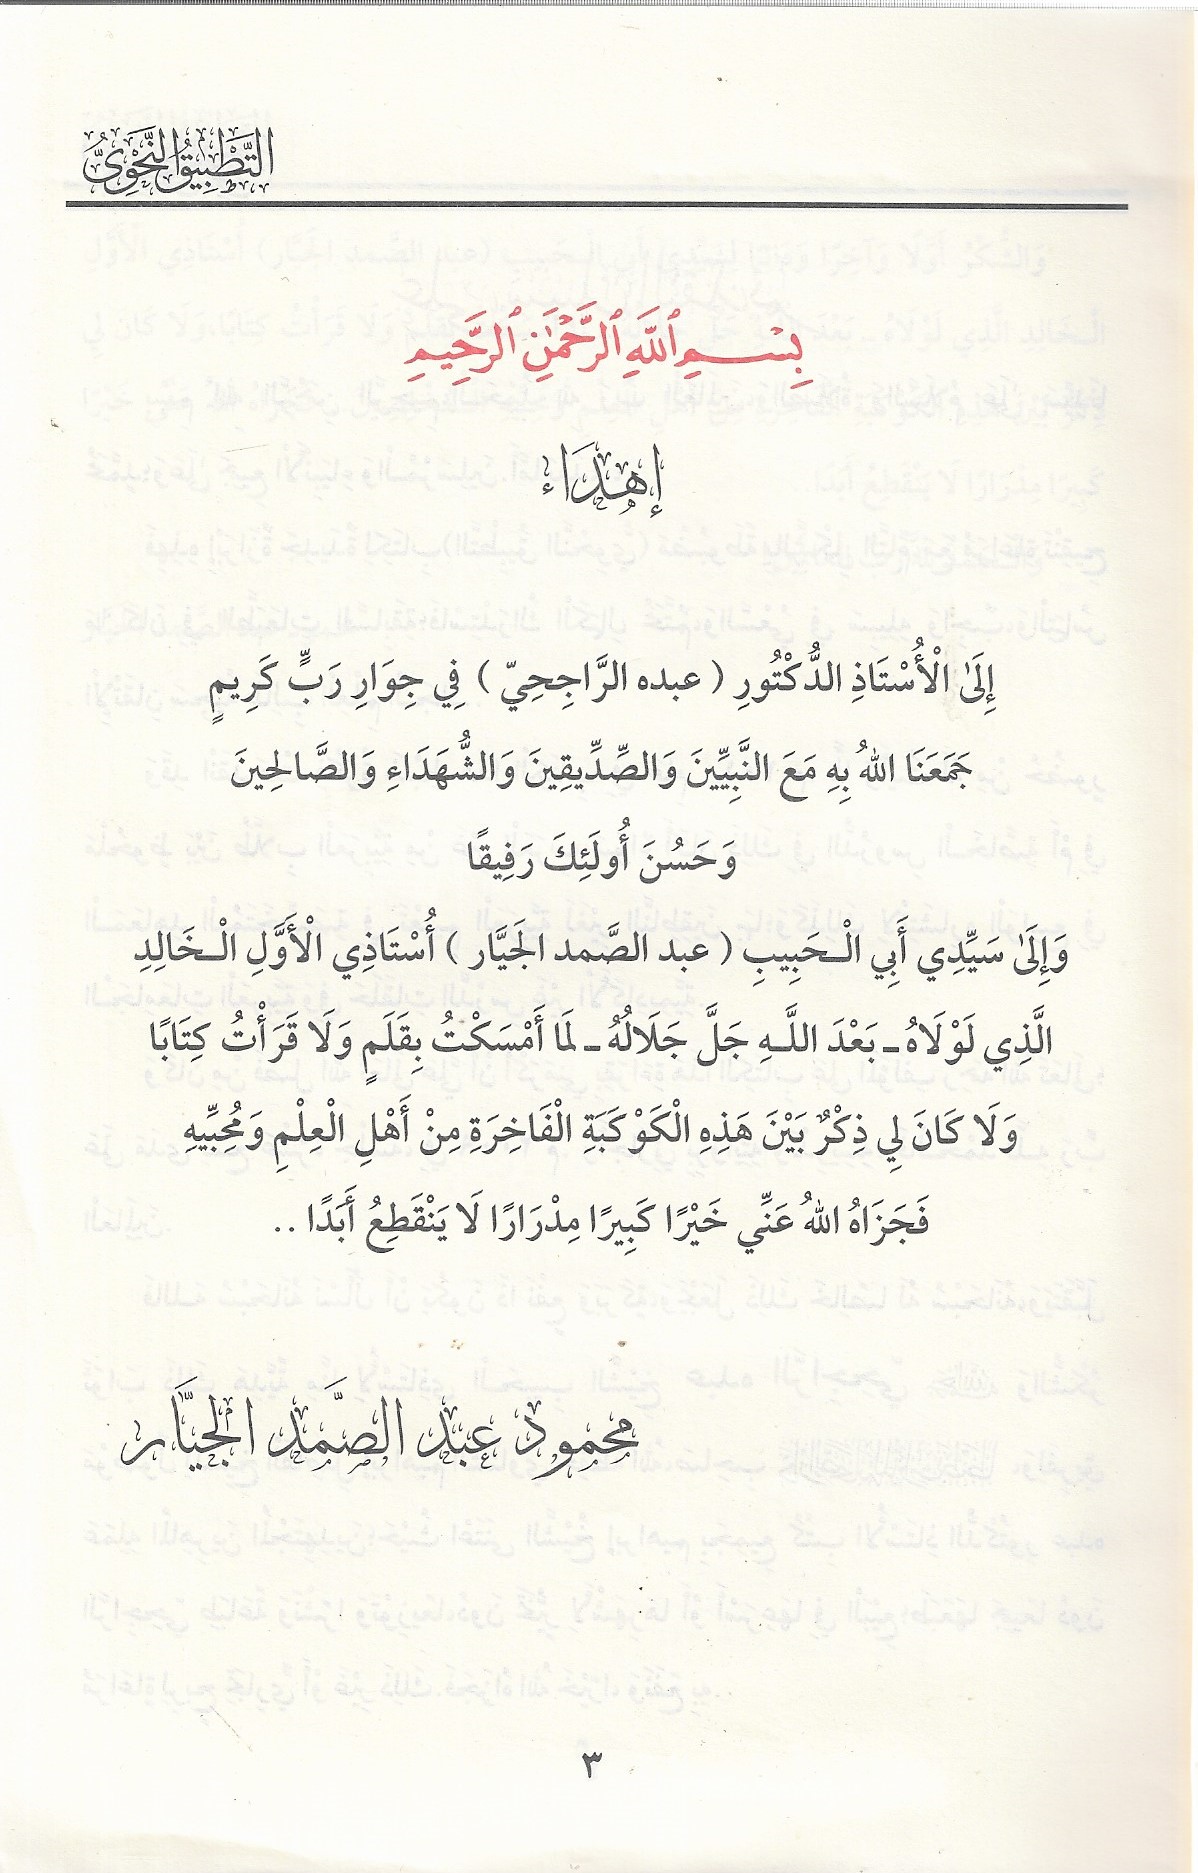 التَّطْبِيقُ النَّحْوِيُّ
بِسْمِ ٱللَّهِ ٱلرَّحْمَٰنِ ٱلرَّحِيمِ
إِهْدَاء
إِلَىٰ الْأُسْتَاذِ الدُّكْتُورِ ( عبده الرَّاجِحِيّ ) فِي جِوَارِ رَبٍّ كَرِيمٍ
جَمَعَنَا اللهُ بِهِ مَعَ النَّبِيِّينَ وَالصِّدِّيقِينَ وَالشُّهَدَاءِ وَالصَّالِحِينَ
وَحَسُنَ أُولَئِكَ رَفِيقًا
وَإِلَىٰ سَيِّدِي أَبِي الْـحَبِيبِ ( عبد الصَّمد الجَيَّار ) أُسْتَاذِي الْأَوَّلِ الْـخَالِدِ
الَّذِي لَوْلَاهُ ـ بَعْدَ اللَّـهِ جَلَّ جَلَالُهُ ـ لَمَا أَمْسَكْتُ بِقَلَمٍ وَلَا قَرَأْتُ كِتَابًا
وَلَا كَانَ لِي ذِكْرٌ بَيْنَ هَذِهِ الْكَوْكَبَةِ الْفَاخِرَةِ مِنْ أَهْلِ الْعِلْمِ وَمُحِبِّيهِ
فَجَزَاهُ اللهُ عَنِّي خَيْرًا كَبِيرًا مِدْرَارًا لَا يَنْقَطِعُ أَبَدًا ..
محمود عبد الصَّمَد الجَيَّار
٣